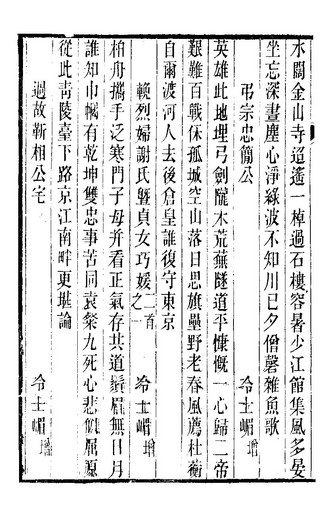 水闊金山寺迢遙一棹過石樓容暑少江館集風多晏
坐忘深晝塵心淨綠波不知川已夕僧磬雜魚歌
弔宗忠簡公
冷士嵋增
英雄此地理弓劍隴木荒蕪隧道平慷慨一心歸二帝
艱難百戰保孤城空山落日思旗壘野老春風薦杜蘅
自爾渡河人去後倉皇誰復守東京
輓烈婦謝氏曁貞女巧媛二首之一
冷士嵋增
柏舟攜手泛寒門子母并看正氣存共道鬚眉無日月
誰知巾幗有乾坤雙忠事苦同袁粲九死心悲似屈原
從此青陵臺下路京江南畔更堪論
過故靳相公宅
冷士嵋增